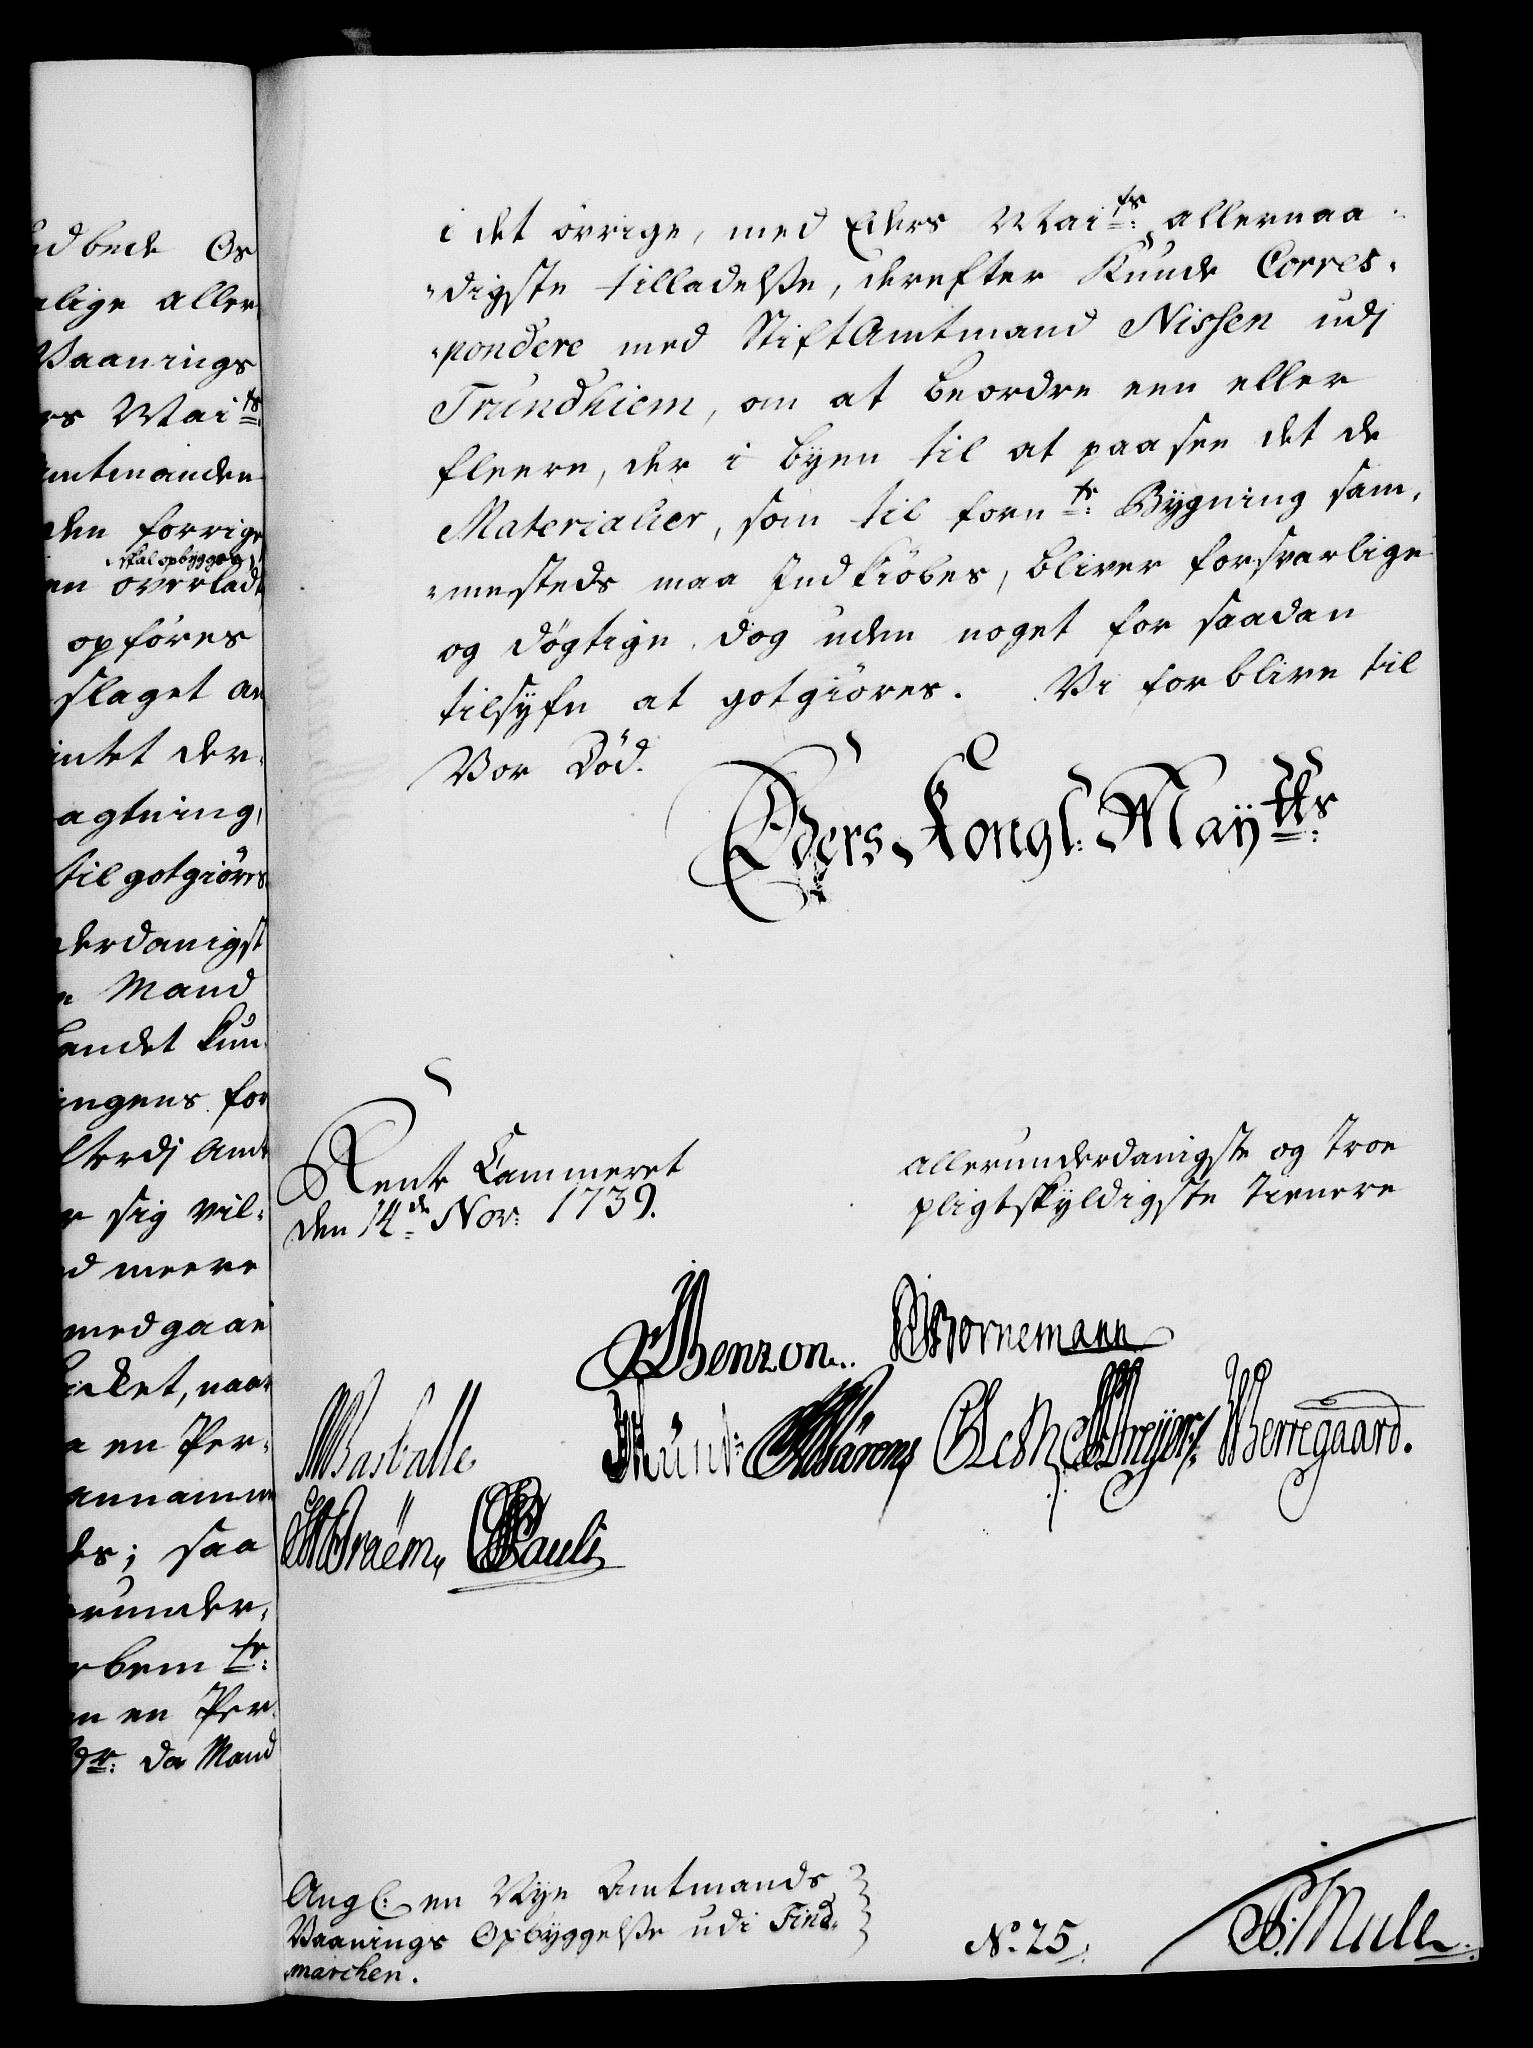 ud bede Os
alige aller
Vaanings
rs Mai.ts
Amtmanden
den forrige
skal opbygges,
en overladt
opföres
slaget an
intet der-
agtning,
til gotgiöres
derdanigst
Mand
andet kun-
ingens for
Amt
r sig vil-
d meere
medgaae
ket, naar
a en Per-
annamme
des; saa
erunder-
rbem.te:
en Per-
dr: da Mand
i det övrige, med Eders Mai.ts: allernaa-
-digste tilladelße, derefter Kunde Corres-
-pondere med StiftAmtmand Nissen udj
Trundhiem, om at beordre een eller
fleere, der i byen til at paasee det de
Materialier, som til forn.te: Bygning sam-
-mesteds maa Indkiöbes, bliver forsvarlige
og dögtige dog uden noget for saadan
tilsyfn at gotgiöres. Vi forblive til
Vor Död.
Eders Kongl: Maÿtts:
Rente Cammeret
den 14.de Nov: 1739.
allerunderdanigste og troe
pligtskyldigste tienere
Benzon. Bornemann
Basballe Münt: Bärens Breÿer Werregaard.
Fraëm, Pauli
Angl: en Nye Amtmands
Vaanings Opbyggelße udi Find-
marchen.
No. 25.
Mule